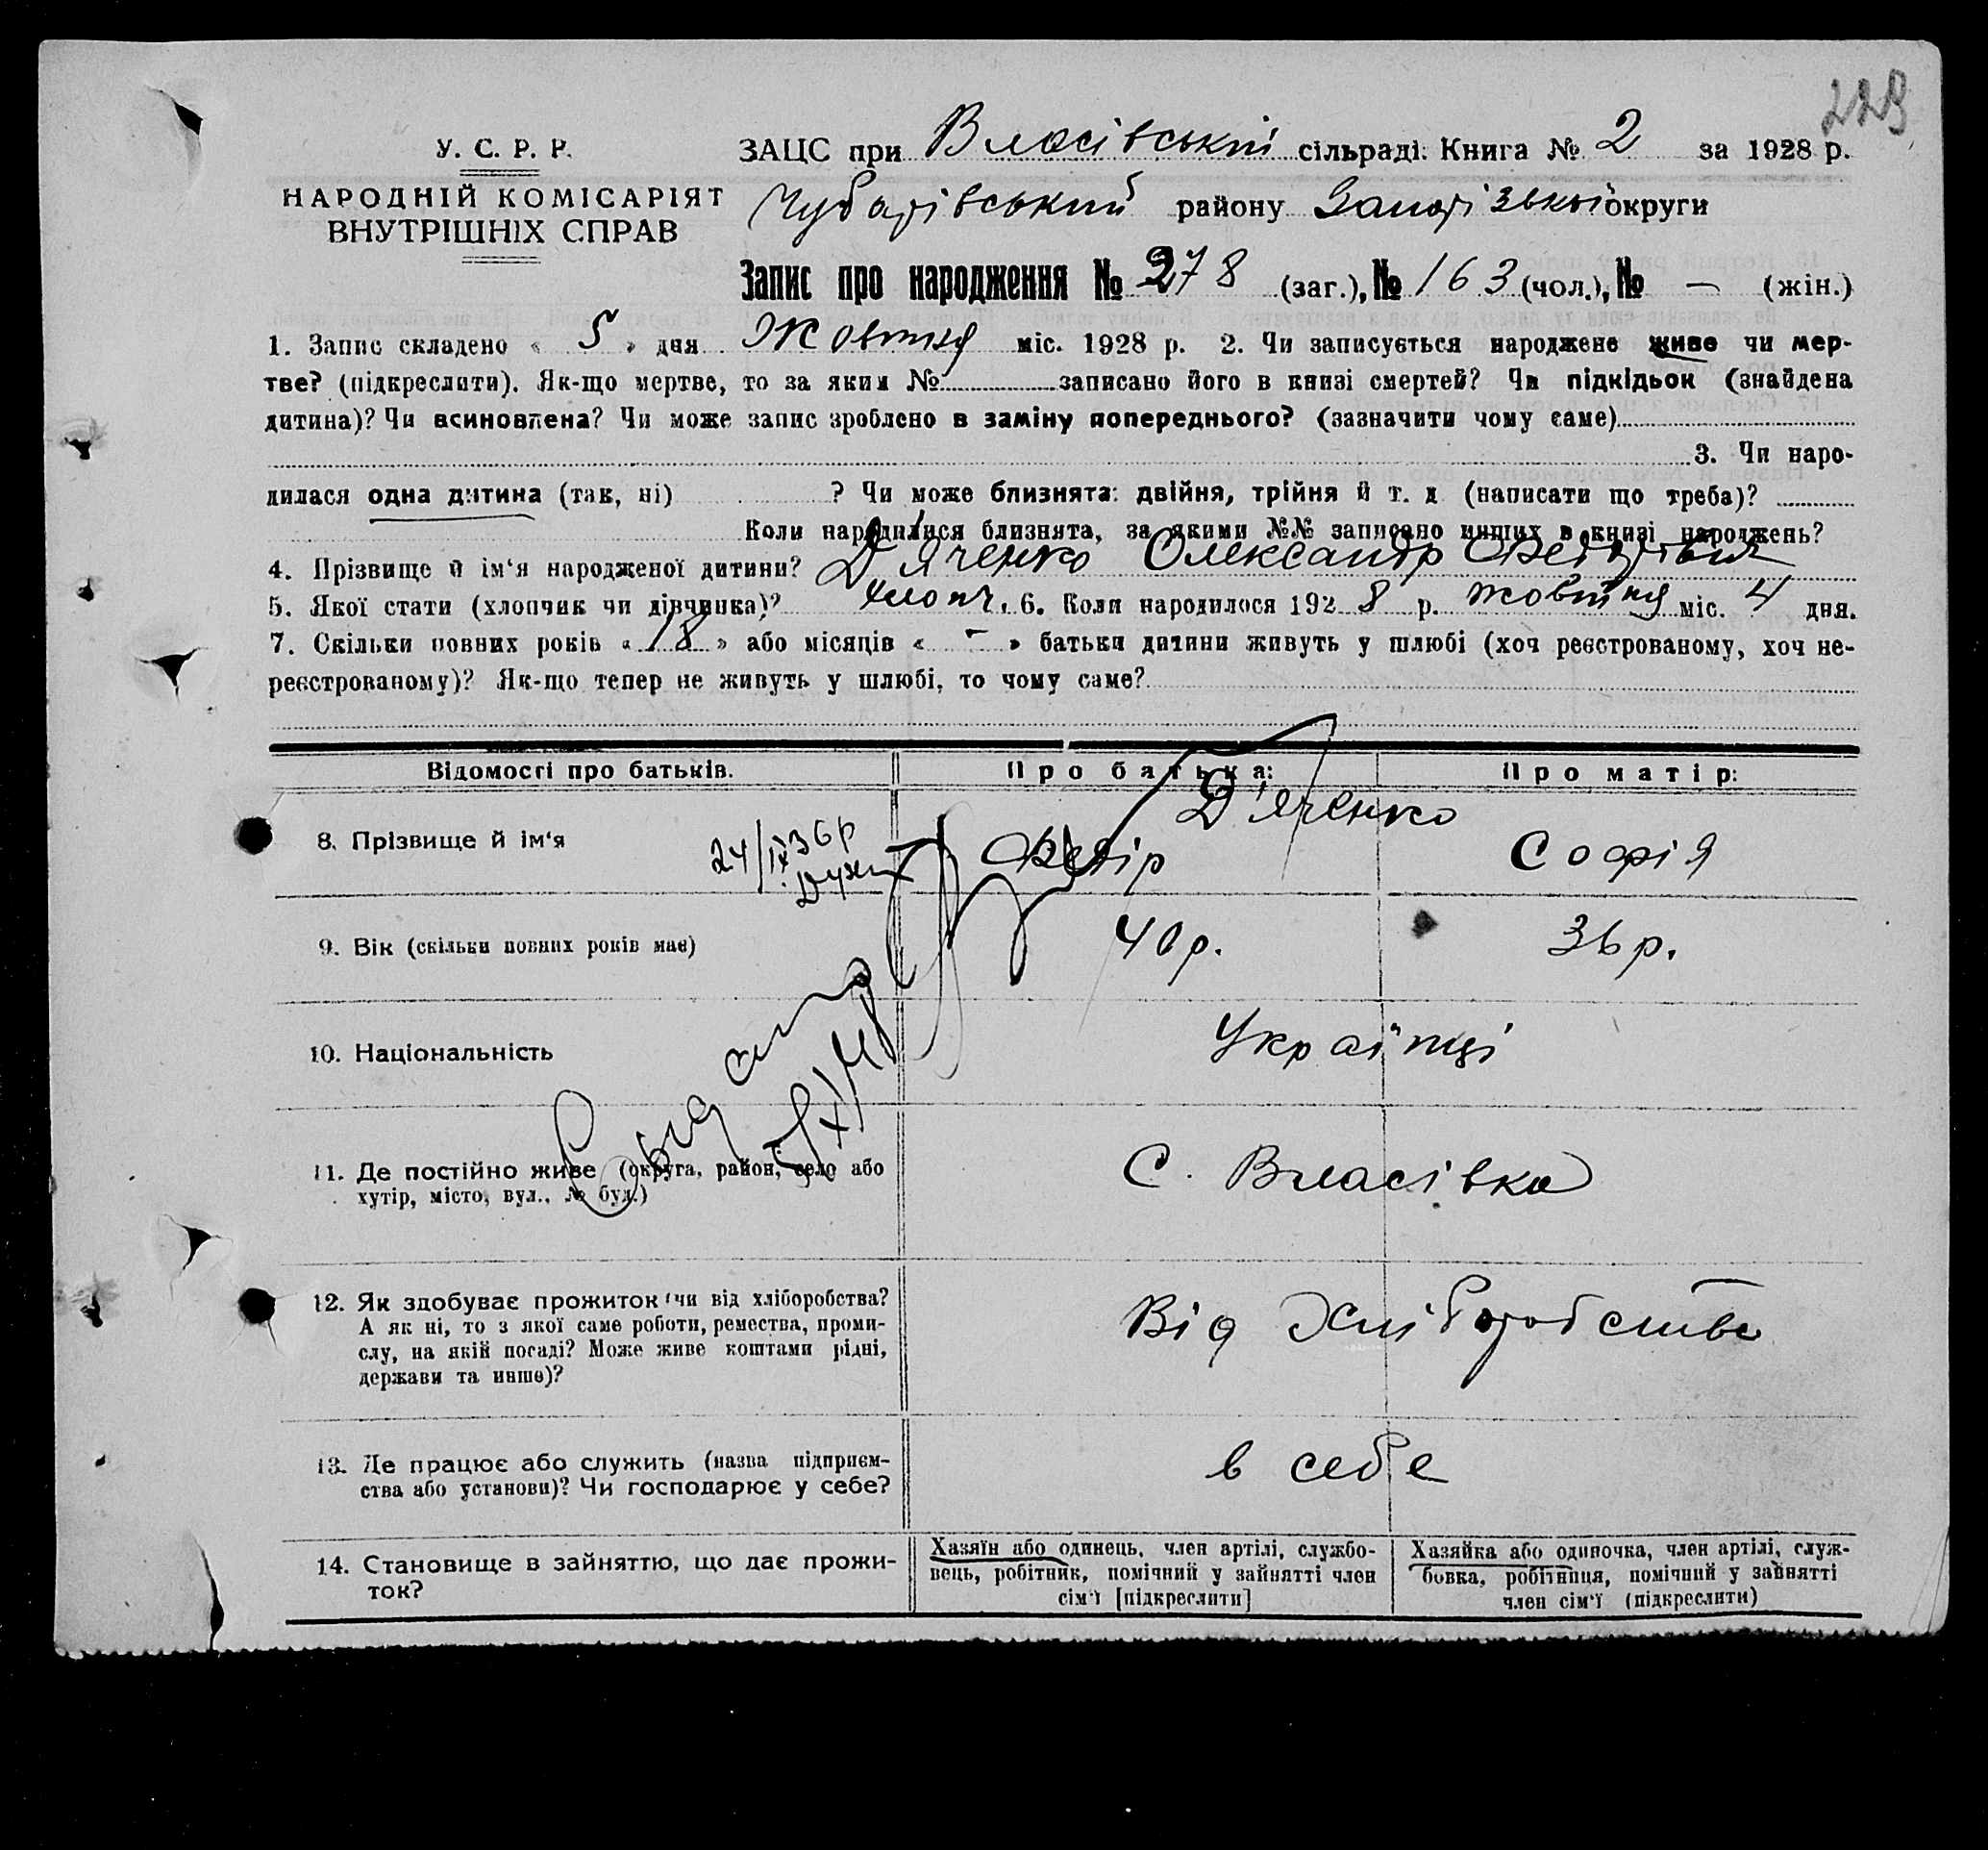 229
У. С. Р. Р.
НАРОДНІЙ КОМІСАРІЯТ
ВНУТРІШНІХ СПРАВ
ЗАЦС при Власівській сільраді: Книга № 2 за 1928 р.
Чубарівський району Запорізької округи
Запис про народження № 278 (заг.), № 163 (чол.), № — (жін.)
1. Запис складено « 5 » дня Жовтня міс. 1928 р. 2. Чи записується народжене живе чи мер-
тве? (підкреслити). Як-що мертве, то за яким № записано його в книзі смертей? Чи підкідьок (знайдена
дитина)? Чи всиновлена? Чи може запис зроблено в заміну попереднього? (зазначити чому саме)
3. Чи наро-
дилася одна дитина (так, ні) ? Чи може близнята: двійня, трійня й т. д (написати що треба)?
Коли народилися близнята, за якими №№ записано инших в книзі народжень?
4. Прізвище й ім‘я народженої дитини? Д'яченко Олександр Федорович
5. Якої стати (хлопчик чи дівчинка)? хлопч. 6. Коли народилося 1928 р. жовтня міс. 4 дня.
7. Скільки повних років « 18 » або місяців « - » батьки дитини живуть у шлюбі (хоч реєстрованому, хоч не-
реєстрованому)? Як-що тепер не живуть у шлюбі, то чому саме?
Відомості про батьків. Про батька: Про матір:
Д'яченко
8. Прізвище й ім‘я 24/IX 36р Федір Софія
9. Вік (скільки повних років має) 40 р. 36 р.
10. Національність Українці
11. Де постійно живе (округа, район, село або
хутір, місто, вул., № буд.)
С. Власівка
12. Як здобуває прожиток (чи від хліборобства?
А як ні, то з якої саме роботи, ремества, проми-
слу, на якій посаді? Може живе коштами рідні,
держави та инше)?
Від Хліборобства
13. Де працює або служить (назва підприєм-
ства або установи)? Чи господарює у себе?
в себе
14. Становище в зайняттю, що дає прожи-
ток?
Хазяїн або одинець, член артілі, службо-
вець, робітник, помічний у зайнятті член
сім‘ї [підкреслити]
Хазяйка або одиночка, член артілі, служ-
бовка, робітниця, помічний у зайнятті
член сім‘ї (підкреслити)